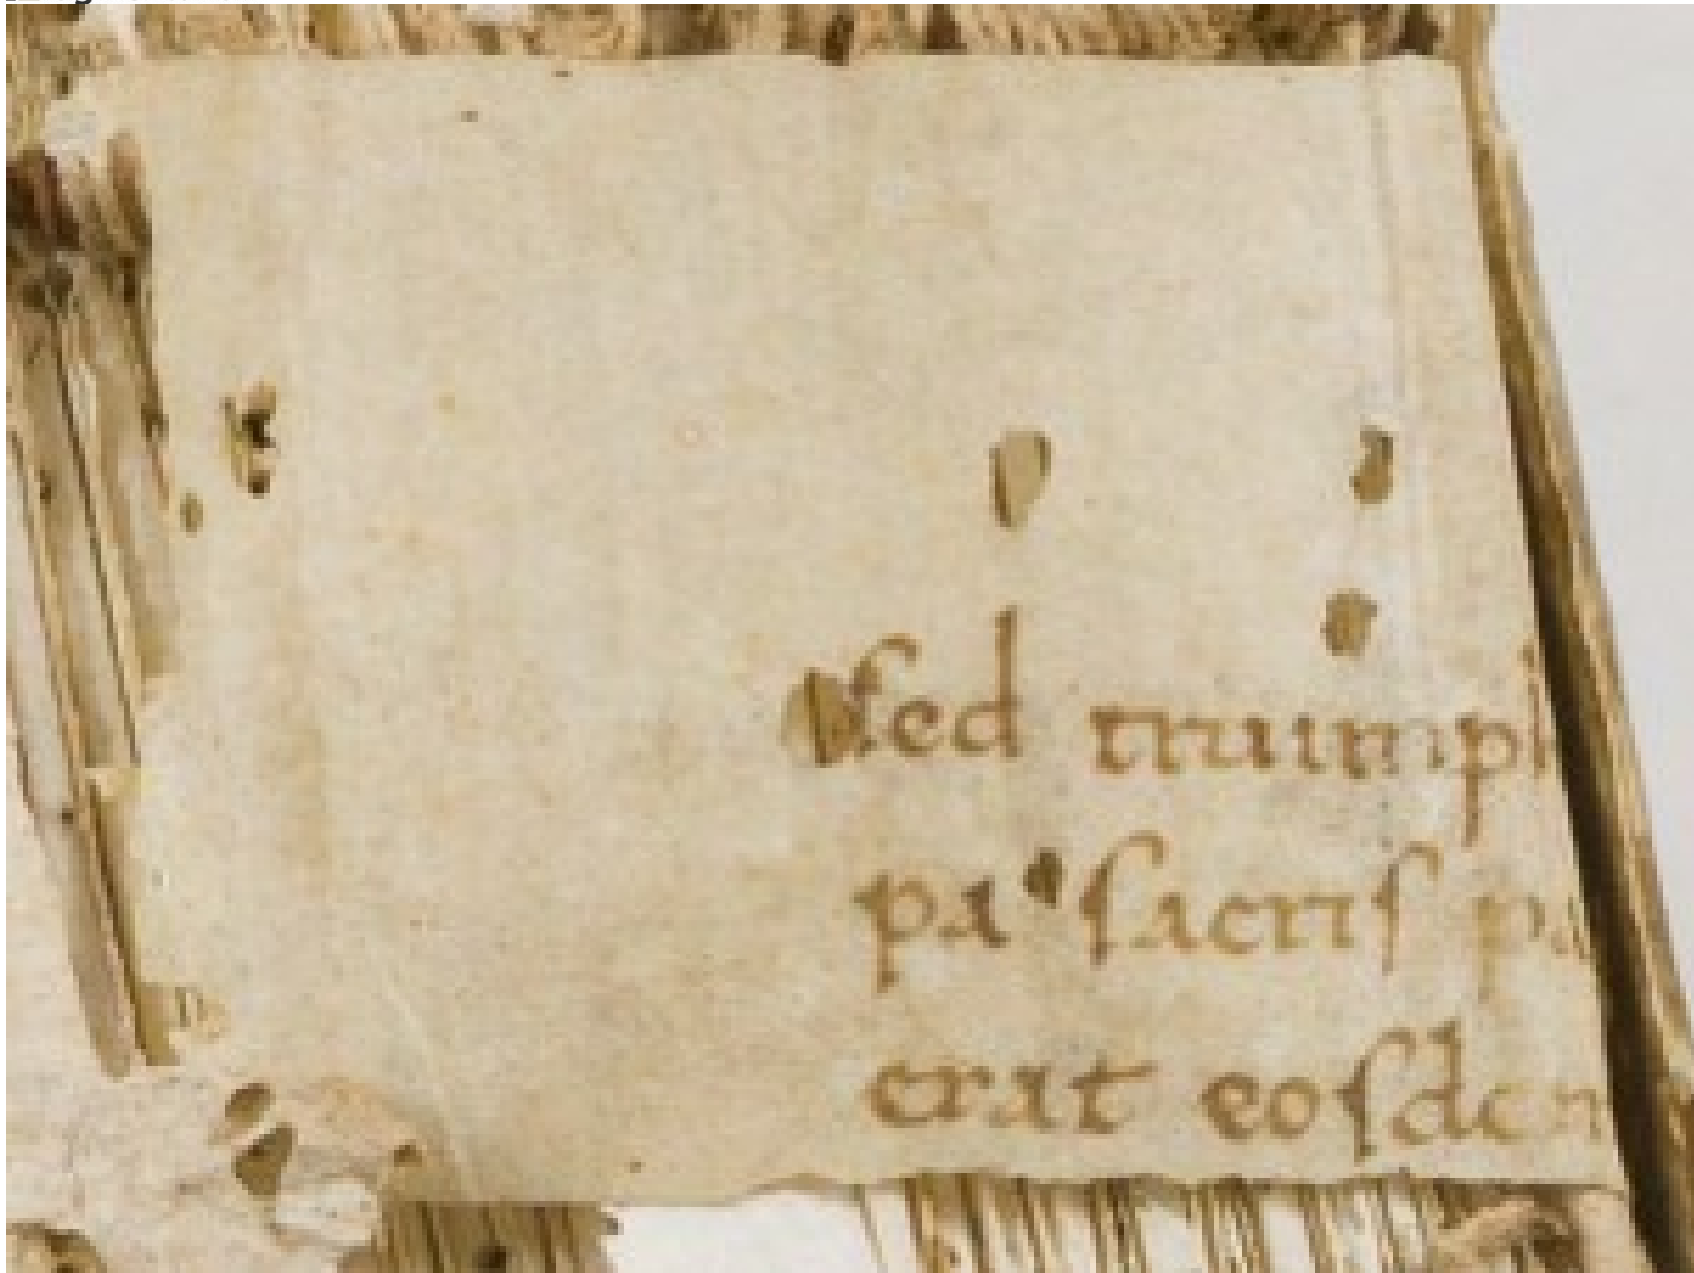 sed triumph
pa sacris pa
erat eosdem